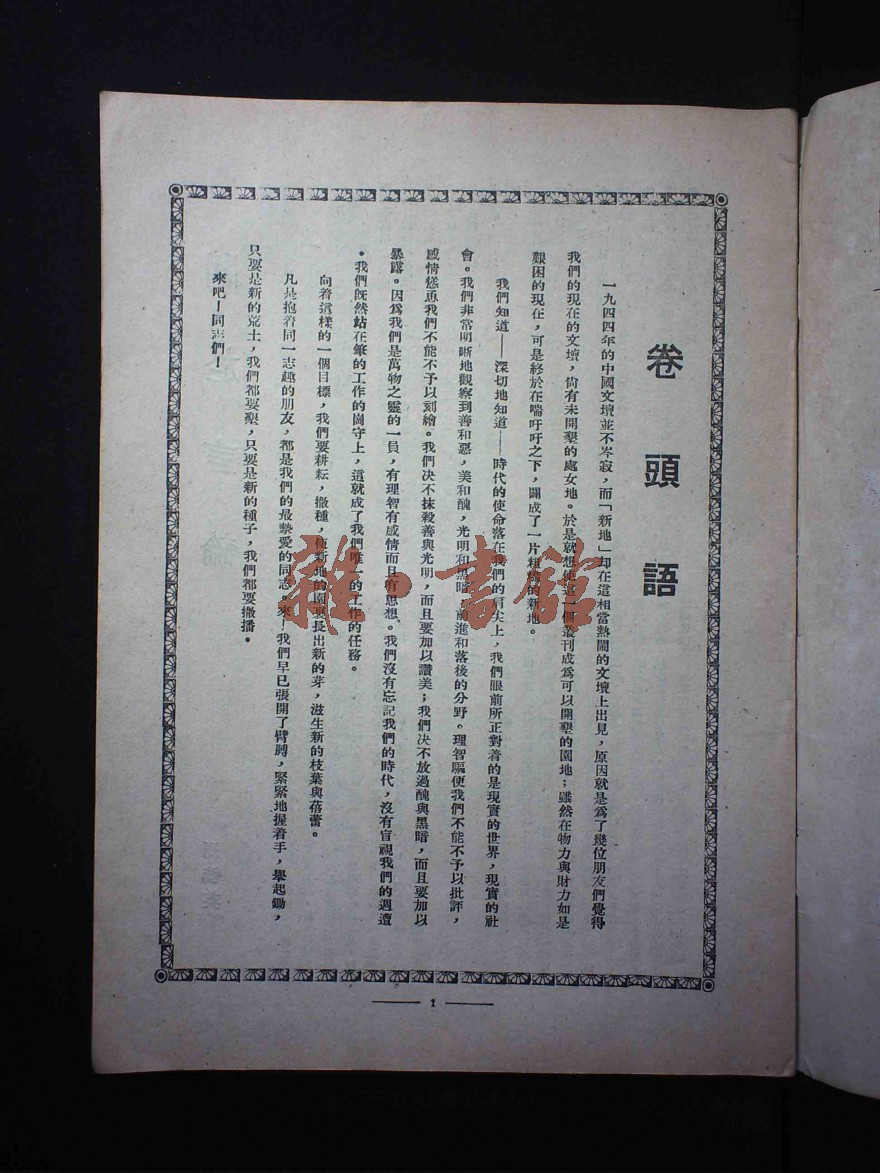 卷頭語
一九四四年的中國文壇並不岑寂，而「新地」却在這相當熱鬧的文壇上出見，原因就是爲了幾位朋友們覺得
我們的現在的文壇，尙有未開墾的處女地。於是就想使這一個叢刊成爲可以開墾的園地；雖然在物力與財力如是
艱困的現在，可是終於在喘吁吁之下，闢成了一片粗 的新地。
我們知道——深切地知道——時代的使命落在我們的肩尖上，我們眼前所正對着的是現實的世界，現實的社
會。我們非常明晰地觀察到善和惡，美和醜，光明和黑暗，前進和落後的分野。理智驅使我們不能不予以批評，
感情慫恿我們不能不予以刻繪。我們决不抹殺善與光明，而且要加以讚美；我們决不放過醜與黑暗，而且要加以
暴露。因爲我們是萬物之靈的一員，有理智有感情而且有思想。我們沒有忘記我們的時代，沒有盲視我們的週遭
。我們旣然站在筆的工作的崗守上，這就成了我們唯一的工作的任務。
向着這樣的一個目標，我們要耕耘，撒種，使新地的園裏長出新的芽，滋生新的枝葉與蓓蕾。
凡是抱着同一志趣的朋友，都是我們的最摯愛的同志。來！我們早已張開了臂膊，緊緊地握着手，舉起鋤，
只要是新的荒土，我們都要墾，只要是新的種子，我們都要撒播。
來吧！同志們！
1
雜·書館